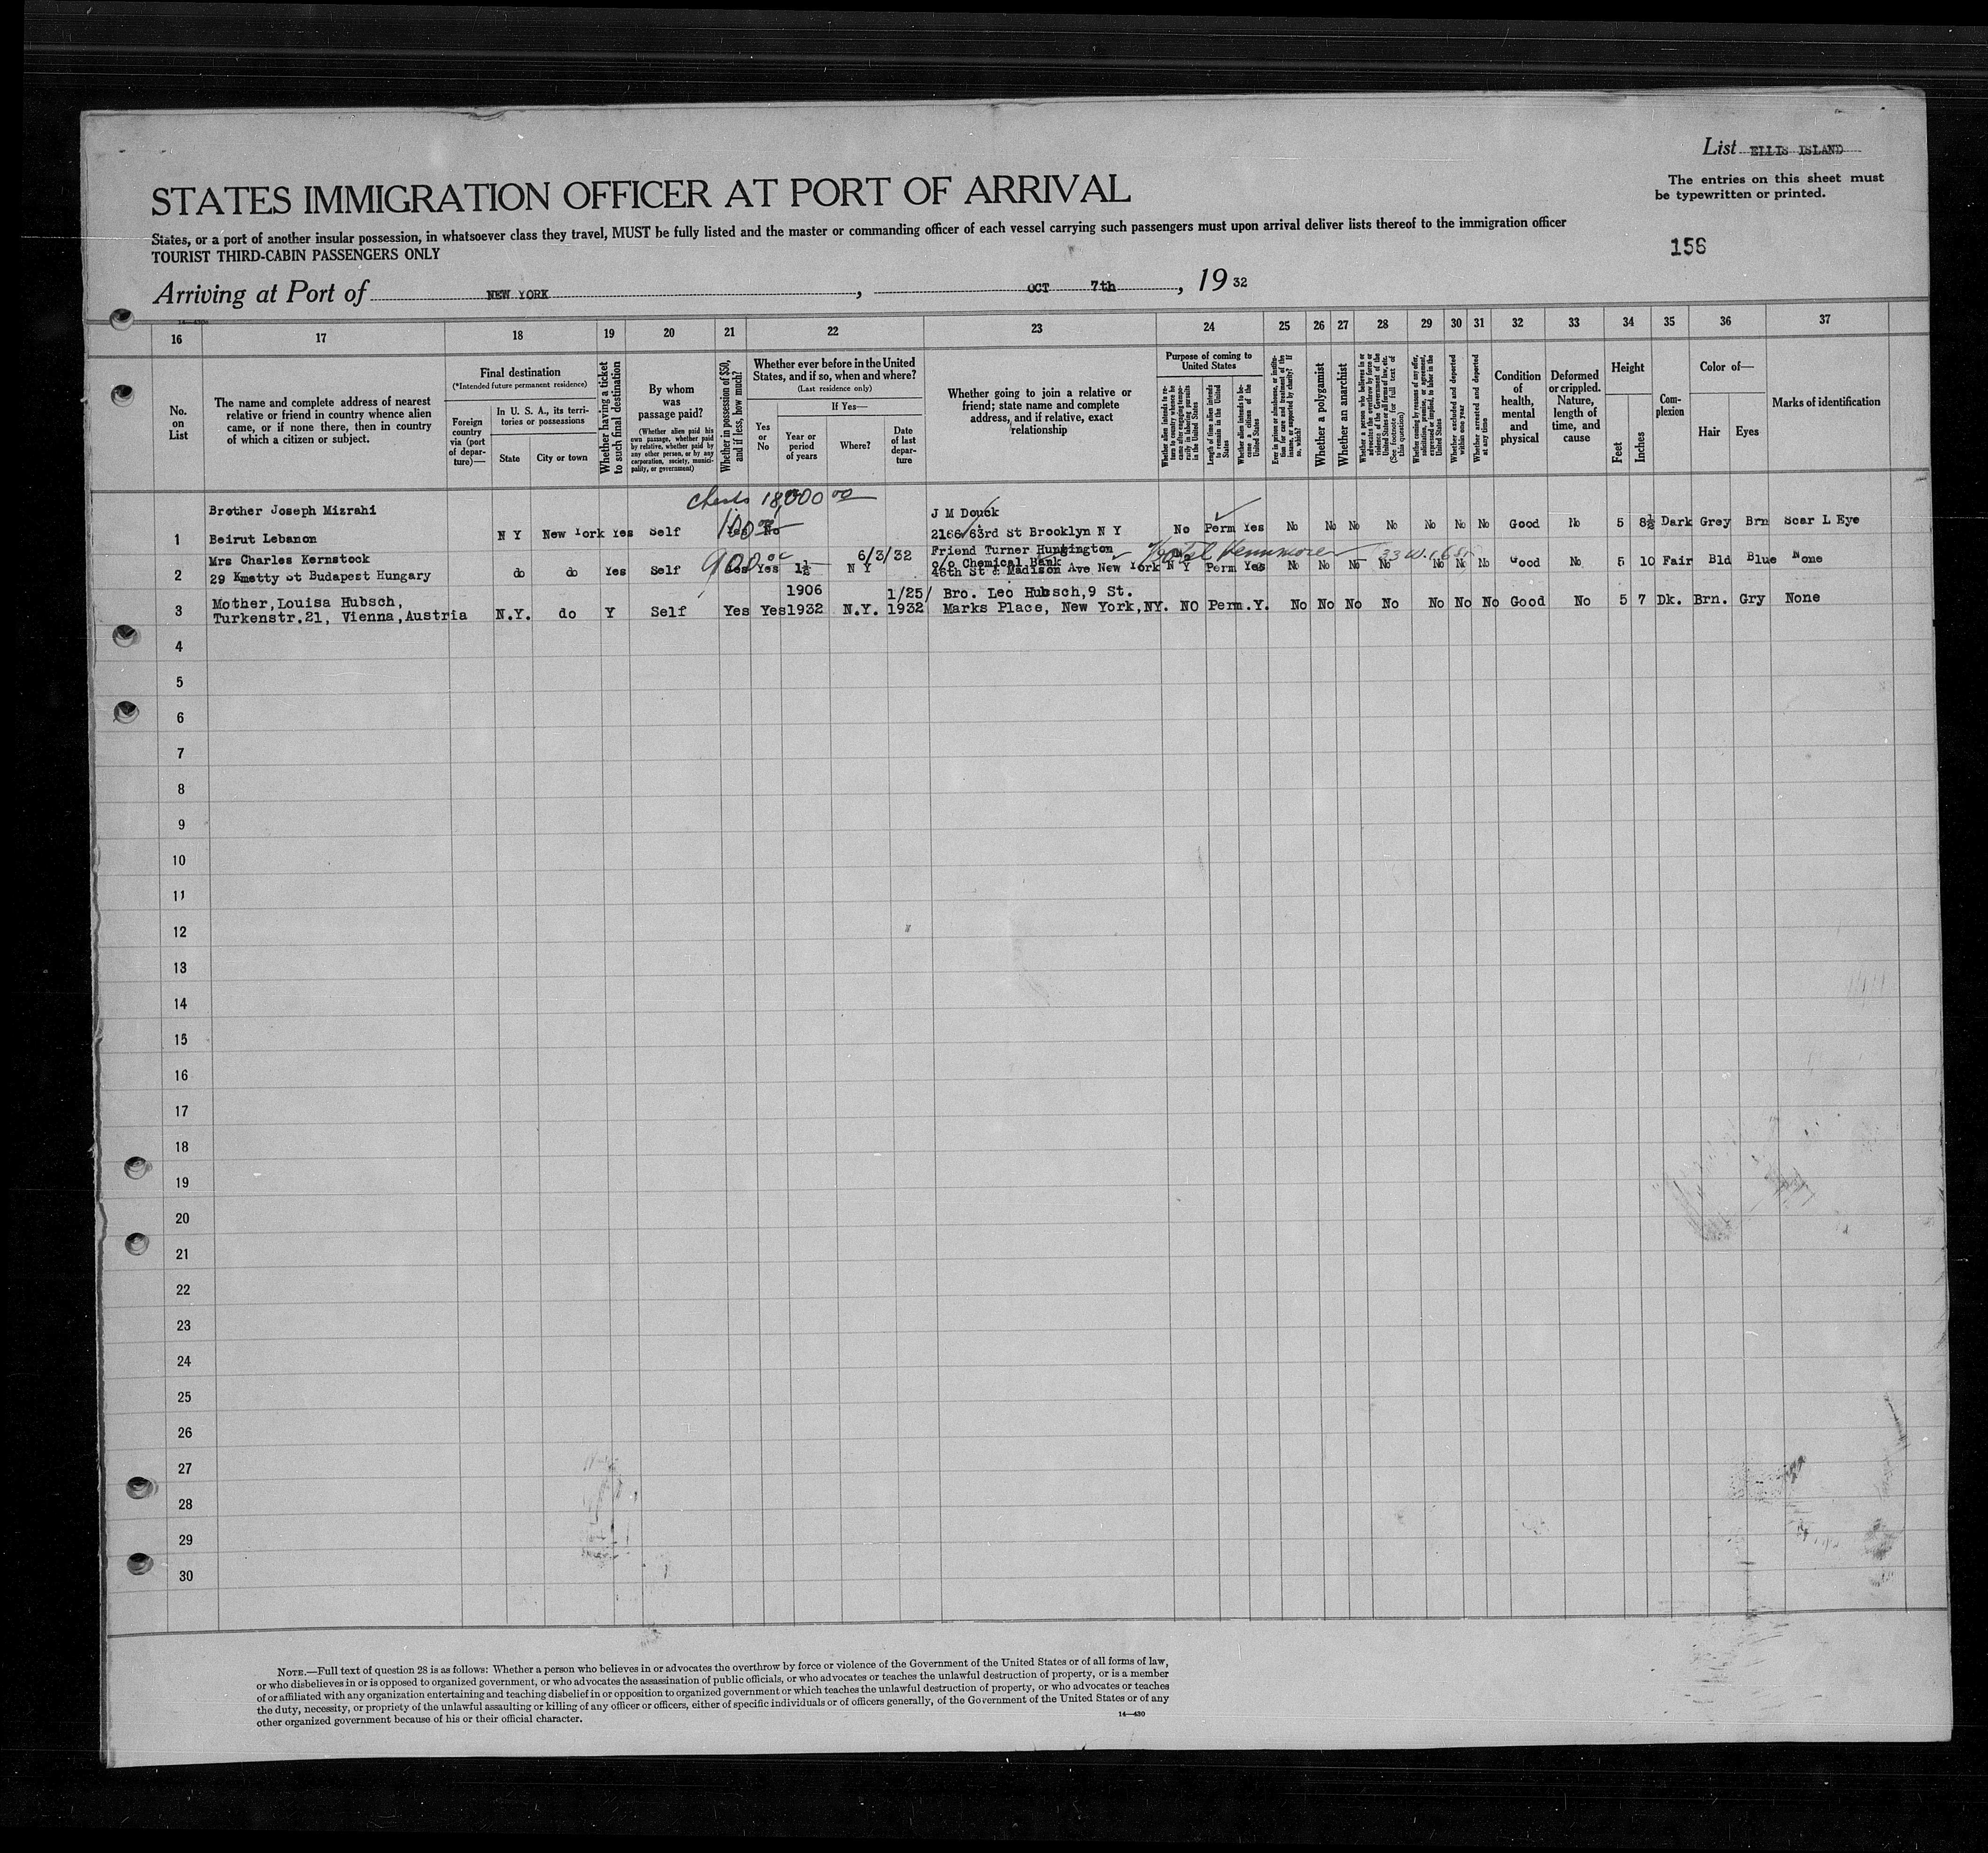 List ELLIS ISLAND
The entries on this sheet must
be typewritten or printed.
156
STATES IMMIGRATION OFFICER AT PORT OF ARRIVAL
States, or a port of another insular possession, in whatsoever class they travel, MUST be fully listed and the master or commanding officer of each vessel carrying such passengers must upon arrival deliver lists thereof to the immigration officer
TOURIST THIRD-CABIN PASSENGERS ONLY
Arriving at Port of NEW YORK, OCT 7th, 1932
16 17 18 19 20 21 22 23 24 25 26 27 28 29 30 31 32 33 34 35 36 37
No.
on
List
The name and complete address of nearest
relative or friend in country whence alien
came, or if none there, then in country
of which a citizen or subject.
Final destination
(*Intended future permanent residence)
Foreign
country
via (port
of depar-
ture)—
In U. S. A., its terri-
tories or possessions
State
City or town
Whether having a ticket
to such final destination
By whom
was
passage paid?
(Whether alien paid his
own passage, whether paid
by relative, whether paid by
any other person, or by any
corporation, society, munici-
pality, or government)
Whether in possession of $50,
and if less, how much?
Whether ever before in the United
States, and if so, when and where?
(Last residence only)
Yes
or
No
If Yes—
Year or
period
of years
Where?
Date
of last
depar-
ture
Whether going to join a relative or
friend; state name and complete
address, and if relative, exact
relationship
Purpose of coming to
United States
Whether alien intends to re-
turn to country whence he
came after engaging tempo-
rarily in laboring pursuits
in the United States
Length of time alien intends
to remain in the United
States
Whether alien intends to be-
come a citizen of the
United States
Ever in prison or almshouse, or institu-
tion for care and treatment of the
insane, or supported by charity? If
so, which?
Whether a polygamist
Whether an anarchist
Whether a person who believes in or
advocates the overthrow by force or
violence of the Government of the
United States or all forms of law, etc.
(See footnote for full text of
this question)
Whether coming by reasons of any offer,
solicitation, promise, or agreement,
expressed or implied, to labor in the
United States
Whether excluded and deported
within one year
Whether arrested and deported
at any time
Condition
of
health,
mental
and
physical
Deformed
or crippled.
Nature,
length of
time, and
cause
Height
Feet
Inches
Com-
plexion
Color of—
Hair Eyes
Marks of identification
checks 18,000 00
Brother Joseph Mizrahi J M Douek
1 Beirut Lebanon N Y New York Yes Self Yes No 2166/63rd St Brooklyn N Y No Perm Yes No No No No No No No Good No 5 8½ Dark Grey Brn Scar L Eye
100 00
Mrs Charles Kernstock 6/3/32 Friend Turner Huntington
c/o Chemical Bank
2 29 Kmetty St Budapest Hungary do do Yes Self Yes Yes 1½ N Y 46th St & Madison Ave New York N Y No Perm Yes No No No No No No No Good No 5 10 Fair Bld Blue None
900 00
Hotel 33 W.
1906 1/25/ Bro. Leo Hubsch,9 St.
3 Mother,Louisa Hubsch, N.Y. do Y Self Yes Yes 1932 N.Y. 1932 Marks Place, New York,NY. NO Perm.Y. No No No No No No No Good No 5 7 Dk. Brn. Gry None
Turkenstr.21, Vienna,Austria
4
5
6
7
8
9
10
11
12
13
14
15
16
17
18
19
20
21
22
23
24
25
26
27
28
29
30
NOTE.—Full text of question 28 is as follows: Whether a person who believes in or advocates the overthrow by force or violence of the Government of the United States or of all forms of law,
or who disbelieves in or is opposed to organized government, or who advocates the assassination of public officials, or who advocates or teaches the unlawful destruction of property, or is a member
of or affiliated with any organization entertaining and teaching disbelief in or opposition to organized government or which teaches the unlawful destruction of property, or who advocates or teaches
the duty, necessity, or propriety of the unlawful assaulting or killing of any officer or officers, either of specific individuals or of officers generally, of the Government of the United States or of any
other organized government because of his or their official character.
14—430